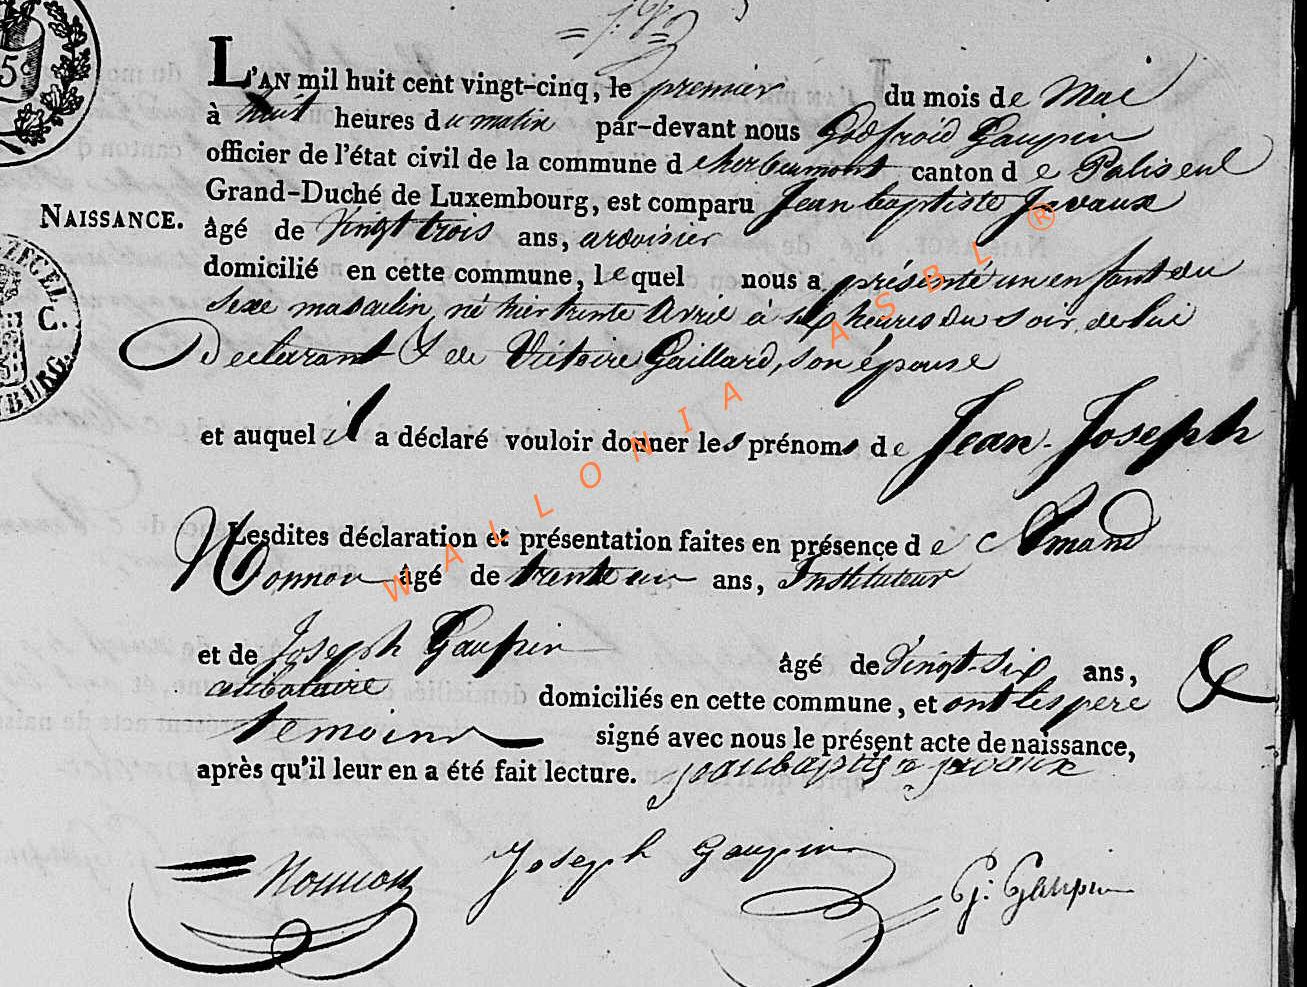 L'AN mil huit cent vingt-cinq, le premier du mois de Mai
à huit heures du matin par-devant nous Godfroid Gaupin
officier de l'état civil de la commune d'herbeumont canton de Paliseul
Grand-Duché de Luxembourg, est comparu Jean baptiste Javaux
NAISSANCE.
âgé de Vingt trois ans, ardoisier
domicilié en cette commune, lequel nous a présenté un enfant du
sexe masculin, né hier trente Avril à six heures du soir, de lui
Declarant & de Victoire Gaillard, son épouse
et auquel il a déclaré vouloir donner les prénoms de Jean-Joseph
Lesdites déclaration et présentation faites en présence de Amand
Nonnon âgé de trente un ans, Instituteur
et de Joseph Gaupin âgé de Vingt-six ans,
celibataire domiciliés en cette commune, et ont les pere &
temoins signé avec nous le présent acte de naissance,
après qu'il leur en a été fait lecture. jean baptiste javaux
Nonnon Joseph Gaupin G: Gaupin
WALLONIA ASBL ®
ZEGEL
C.
BURG.
5